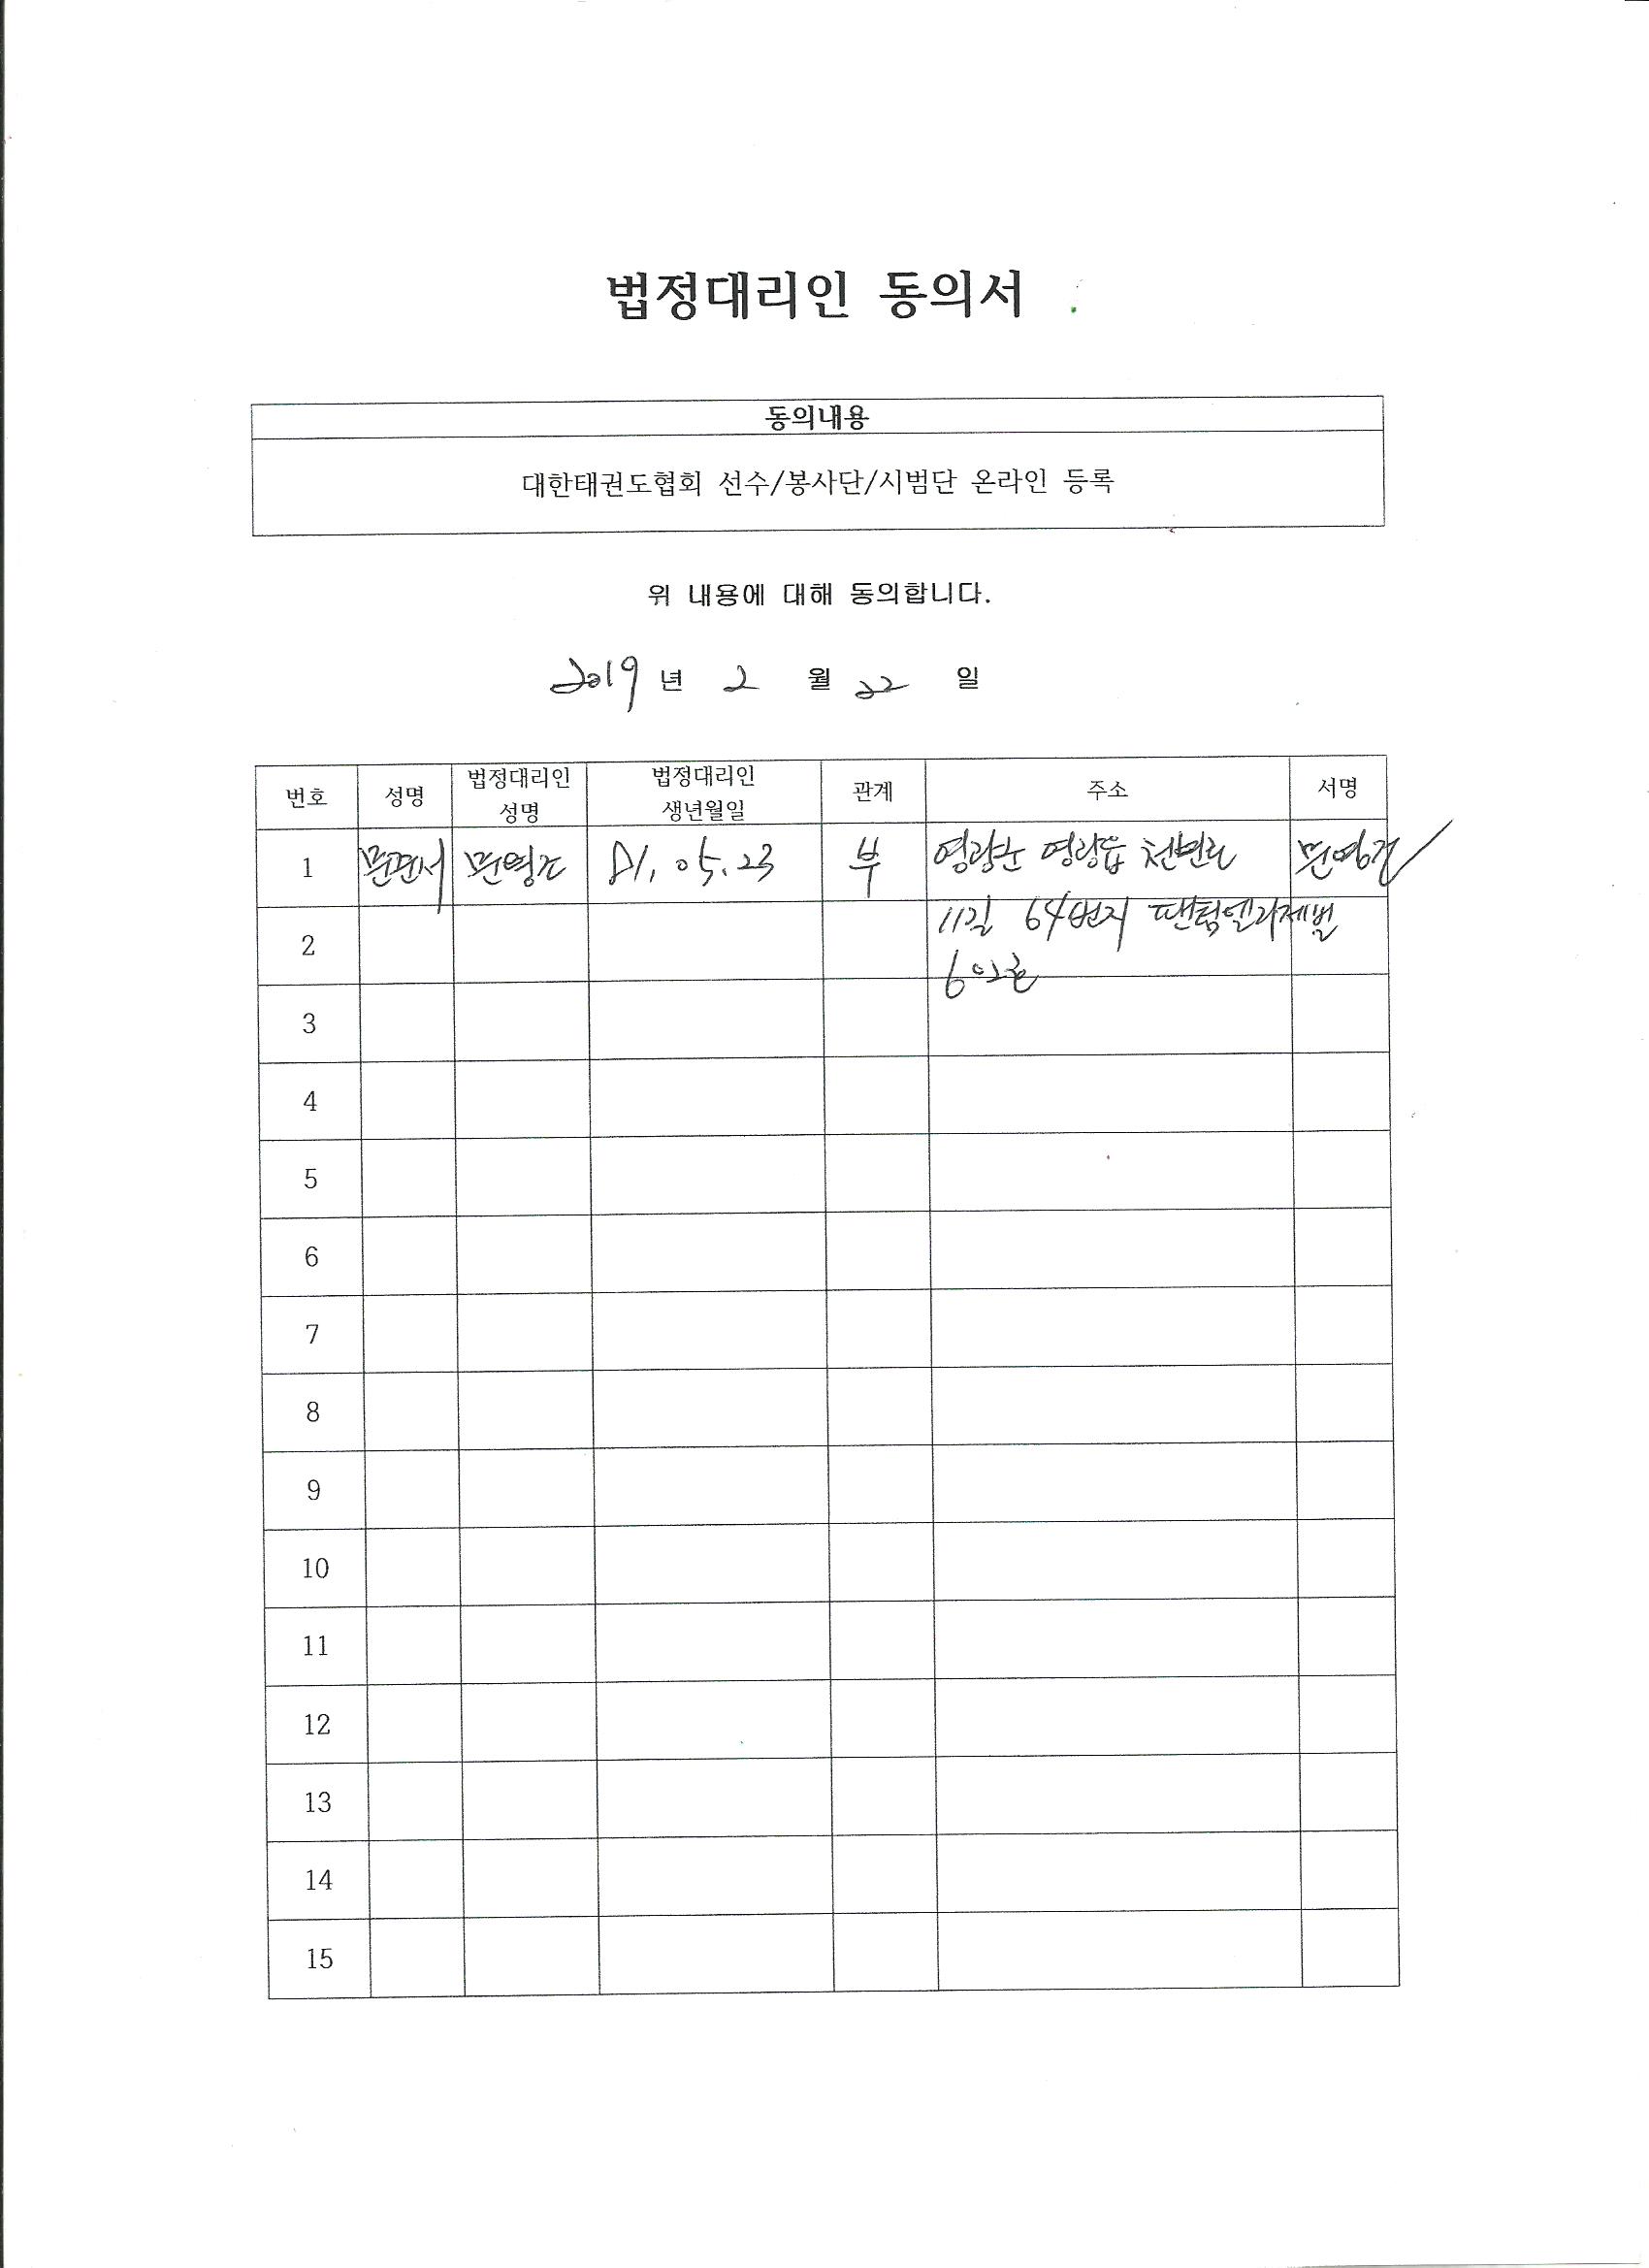 법정대리인 동의서
동의내용
대한태권도협회 선수/봉사단/시범단 온라인 등록
위 내용에 대해 동의합니다.
2019 년 2 월 22 일
번호 성명 법정대리인 성명 법정대리인 생년월일 관계 주소 서명
1 81. 05. 23 부 영광군 영광읍 천변로
2 11길 64번지
3
4
5
6
7
8
9
10
11
12
13
14
15